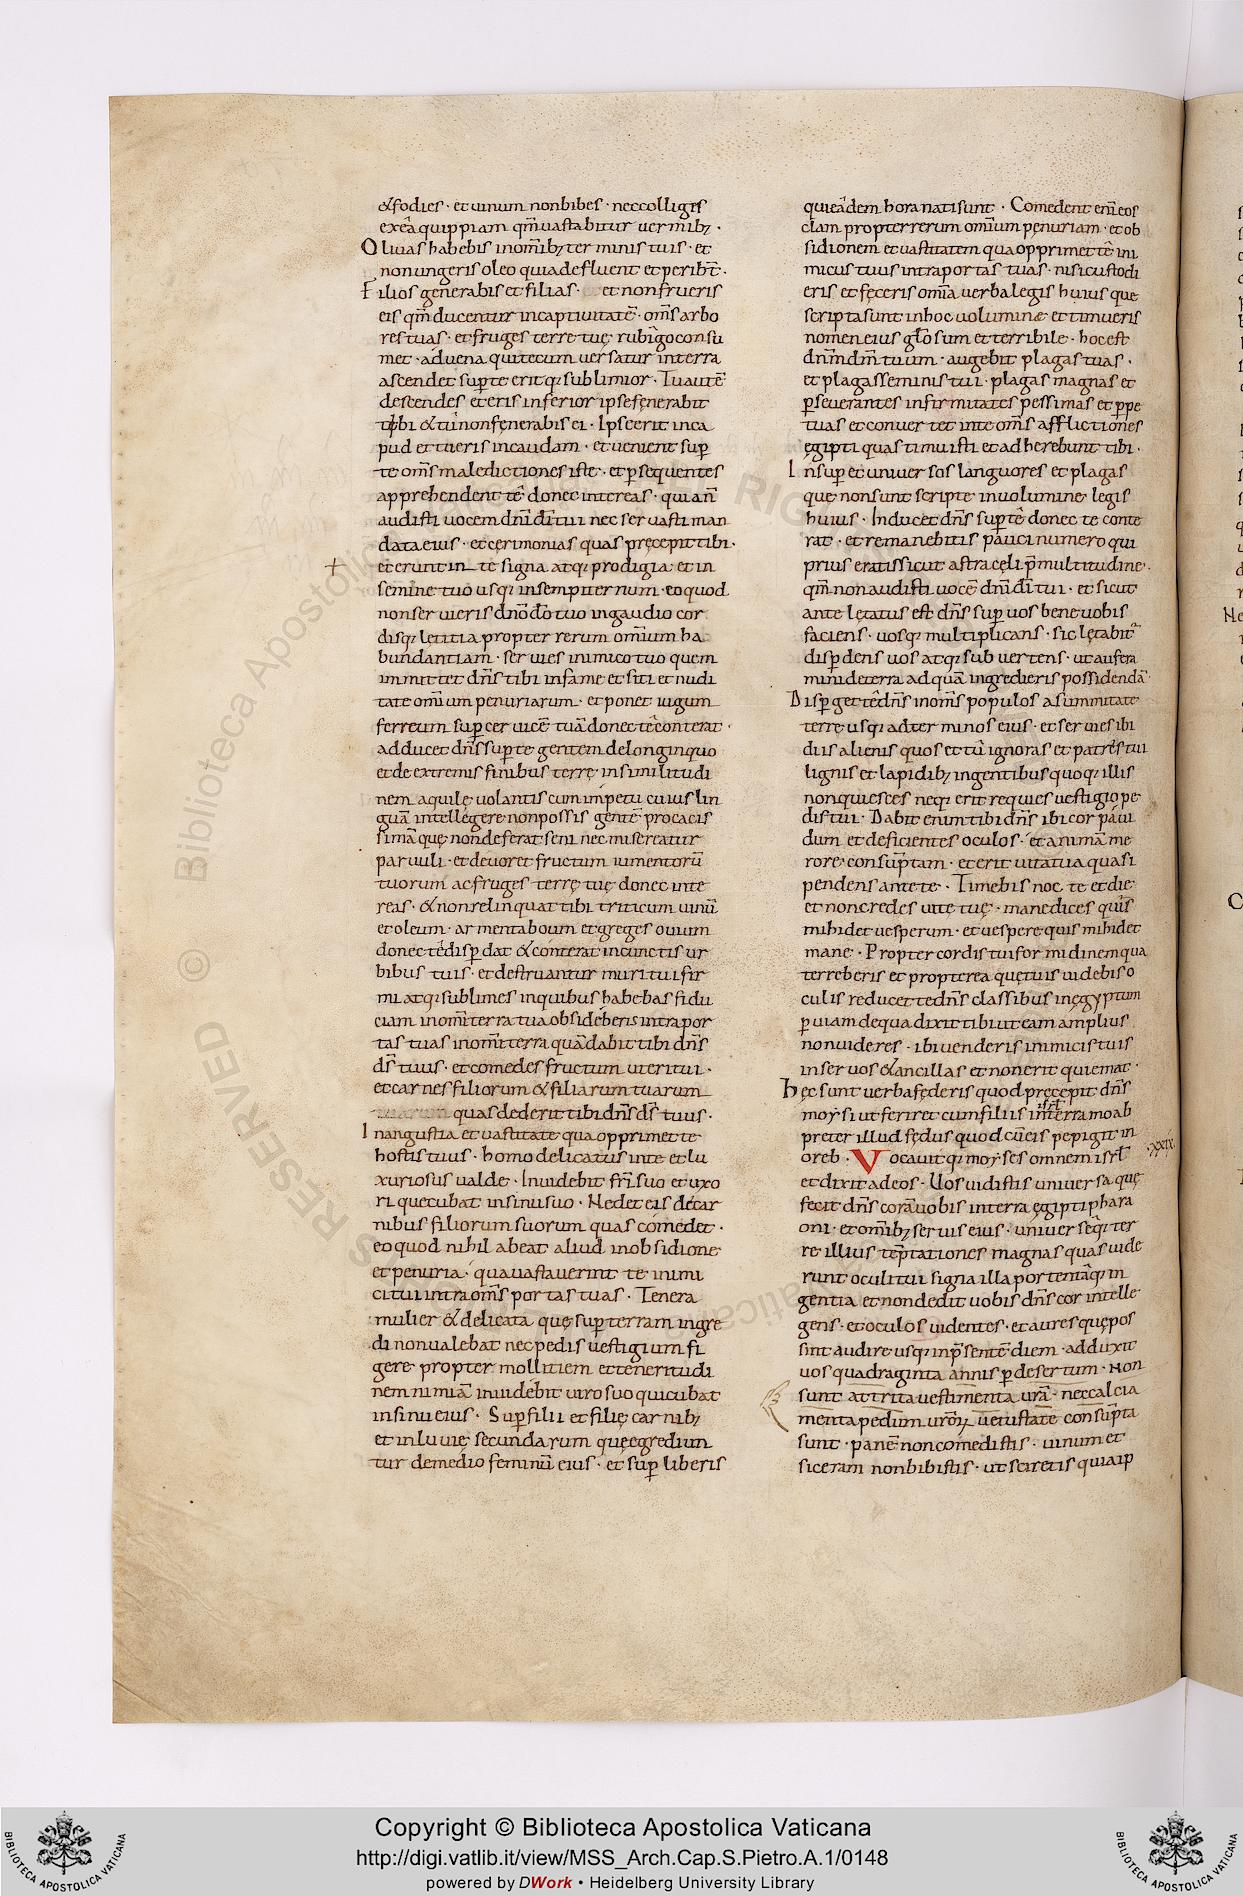 &fodies · et uinum non bibes · nec colliges
ex eâ quippiam qm̄ uastabitur uermib; ·
Oliuas habebis in om̄ib; terminis tuis · et
non ungeris oleo quia defluent et peribt̄ ·
Filios generabis et filias · et non frueris
eis qm̄ ducentur in captiuitatē · om̄s arbo
res tuas · et fruges terre tuę rubigo consu
met · aduena qui tecum uersatur in terra
ascendet sup̄ te eritq; sublimior · Tu autē
descendes et eris inferior ipse fęnerabit
tibi & tu non fęnerabis ei · Ipse erit in ca
pud et tu eris in caudam · et uenient sup̄
te om̄s maledictiones iste · et p̄sequentes
apprehendent tē donec intereas · quia n̄
audisti uocem dn̄i dī tui nec seruasti man
data eius · et cęrimonias quas pręcepit tibi ·
et erunt in te signa atq; prodigia et in
semine tuo usq; in sempiternum · eo quod
non seruieris dn̄o dō tuo in gaudio cor
disq; lętitia propter rerum om̄ium ha
bundantiam · seruies inimico tuo quem
inmittet dn̄s tibi in fame et siti et nudi
tate om̄ium penuriarum · et ponet iugum
ferreum sup̄ ceruicē tuā donec te conterat ·
adducet dn̄s sup̄ te gentem de longinquo
et de extremis finibus terrę in similitudi
nem aquilę uolantis cum impetu cuius lin
guā intellegere non possis gentē procacis
simā que non deferat seni nec misereatur
paruuli · et deuoret fructum iumentorū
tuorum ac fruges terrę tuę donec inte
reas · & non relinquat tibi triticum uinū
et oleum · armenta boum et greges ouium
donec te disp̄dat & conterat in cunctis ur
bibus tuis · et destruantur muri tui fir
mi atq; sublimes in quibus habebas fidu
ciam in om̄i terra tua obsideberis intra por
tas tuas in om̄i terra quā dabit tibi dn̄s
ds̄ tuus · et comedes fructum uteri tui ·
et carnes filiorum & filiarum tuarum
quas dederit tibi dn̄s ds̄ tuus ·
In angustia et uastitate qua opprimet te
hostis tuus · homo delicatus in te et lu
xuriosus ualde · Inuidebit fr̄i suo et uxo
ri que cubat in sinu suo · Ne det eis de car
nibus filiorum suorum quas comedet ·
eo quod nihil abeat aliud in obsidione
et penuria · qua uastauerint te inimi
ci tui intra om̄s portas tuas · Tenera
mulier & delicata quę sup̄ terram ingre
di non ualebat nec pedis uestigium fi
gere propter mollitiem et teneritudi
nem nimiā inuidebit uiro suo qui cubat
in sinu eius · Sup̄ filii et filię carnib;
et inluuię secundarum quę egrediun
tur de medio feminū eius · et sup̄ liberis
qui eadem hora nati sunt · Comedent enī eos
clam propter rerum om̄ium pęnuriam · et ob
sidionem et uastitatem qua opprimet tē ini
micus tuus intra portas tuas · nisi custodi
eris et fęceris om̄ia uerba legis huius que
scripta sunt in hoc uolumine et timueris
nomen eius gl̄osum et terribile · hoc est
dn̄m dm̄ tuum · augebit plagas tuas ·
et plagas seminis tui · plagas magnas et
p̄seuerantes infirmitates pessimas et p̄pe
tuas et conuertet in te om̄s afflictiones
ęgipti quas timuisti et adherebunt tibi ·
Insup̄ et uniuersos languores et plagas
que non sunt scripte in uolumine legis
huius · Inducet dn̄s sup̄ tē donec te conte
rat · et remanebitis pauci numero qui
prius eratis sicut astra cęli p̄ multitudine ·
qm̄ non audisti uocē dn̄i dī tui · et sicut
ante lętatus est dn̄s sup̄ uos bene uobis
faciens · uosq; multiplicans · sic lętabit̄
disp̄dens uos atq; subuertens · ut aufera
mini de terra ad quā ingredieris possidendā
Disp̄get te dn̄s in om̄s populos a summitate
terrę usq; ad terminos eius · et seruies ibi
diis alienis quos et tu ignoras et patres tui
lignis et lapidib; in gentibus quoq; illis
non quiesces neq; erit requies uestigio pe
dis tui · Dabit enim tibi dn̄s ibi cor paui
dum et deficientes oculos · et animā me
rore consūptam · et erit uita tua quasi
pendens ante te · Timebis nocte et die
et non credes uite tuę · mane dices quis
mihi det uesperum · et uespere quis mihi det
mane · Propter cordis tui formidinem qua
terreberis et propter ea quę tuis uidebis o
culis reducet te dn̄s classibus in ęgyptum
p̄ uiam de qua dixit tibi ut eam amplius
non uideres · ibi uenderis inimicis tuis
in seruos & ancillas et non erit qui emat ·
Hęc sunt uerba fęderis quod pręcepit dn̄s
moysi ut feriret cum filiis isrl̄ in terra moab
preter illud fędus quod cū eis pepigit in
oreb · Vocauit q; moyses omnem isrl̄ ·xxix·
et dixit ad eos · Uos uidistis uniuersa quę
fecit dn̄s corā uobis in terra ęgipti phara
oni · et om̄ib; seruis eius · uniuerseq; ter
re illius tēptationes magnas quas uide
runt oculi tui signa illa portentaq; in
gentia et non dedit uobis dn̄s cor intelle
gens · et oculos uidentes · et aures quę pos
sint audire usq; in p̄sentē diem · adduxit
uos quadraginta annis p̄ desertum · Non
sunt attrita uestimenta urā · nec calcia
menta pedum urōꝝ uetustate consūpta
sunt · panē non comedistis · uinum et
siceram non bibistis · ut sciretis quia ip
© Biblioteca Apostolica Vaticana
ALL RIGHTS RESERVED
Copyright © Biblioteca Apostolica Vaticana
http://digi.vatlib.it/view/MSS_Arch.Cap.S.Pietro.A.1/0148
powered by DWork • Heidelberg University Library
BIBLIOTECA APOSTOLICA VATICANA
BIBLIOTECA APOSTOLICA VATICANA